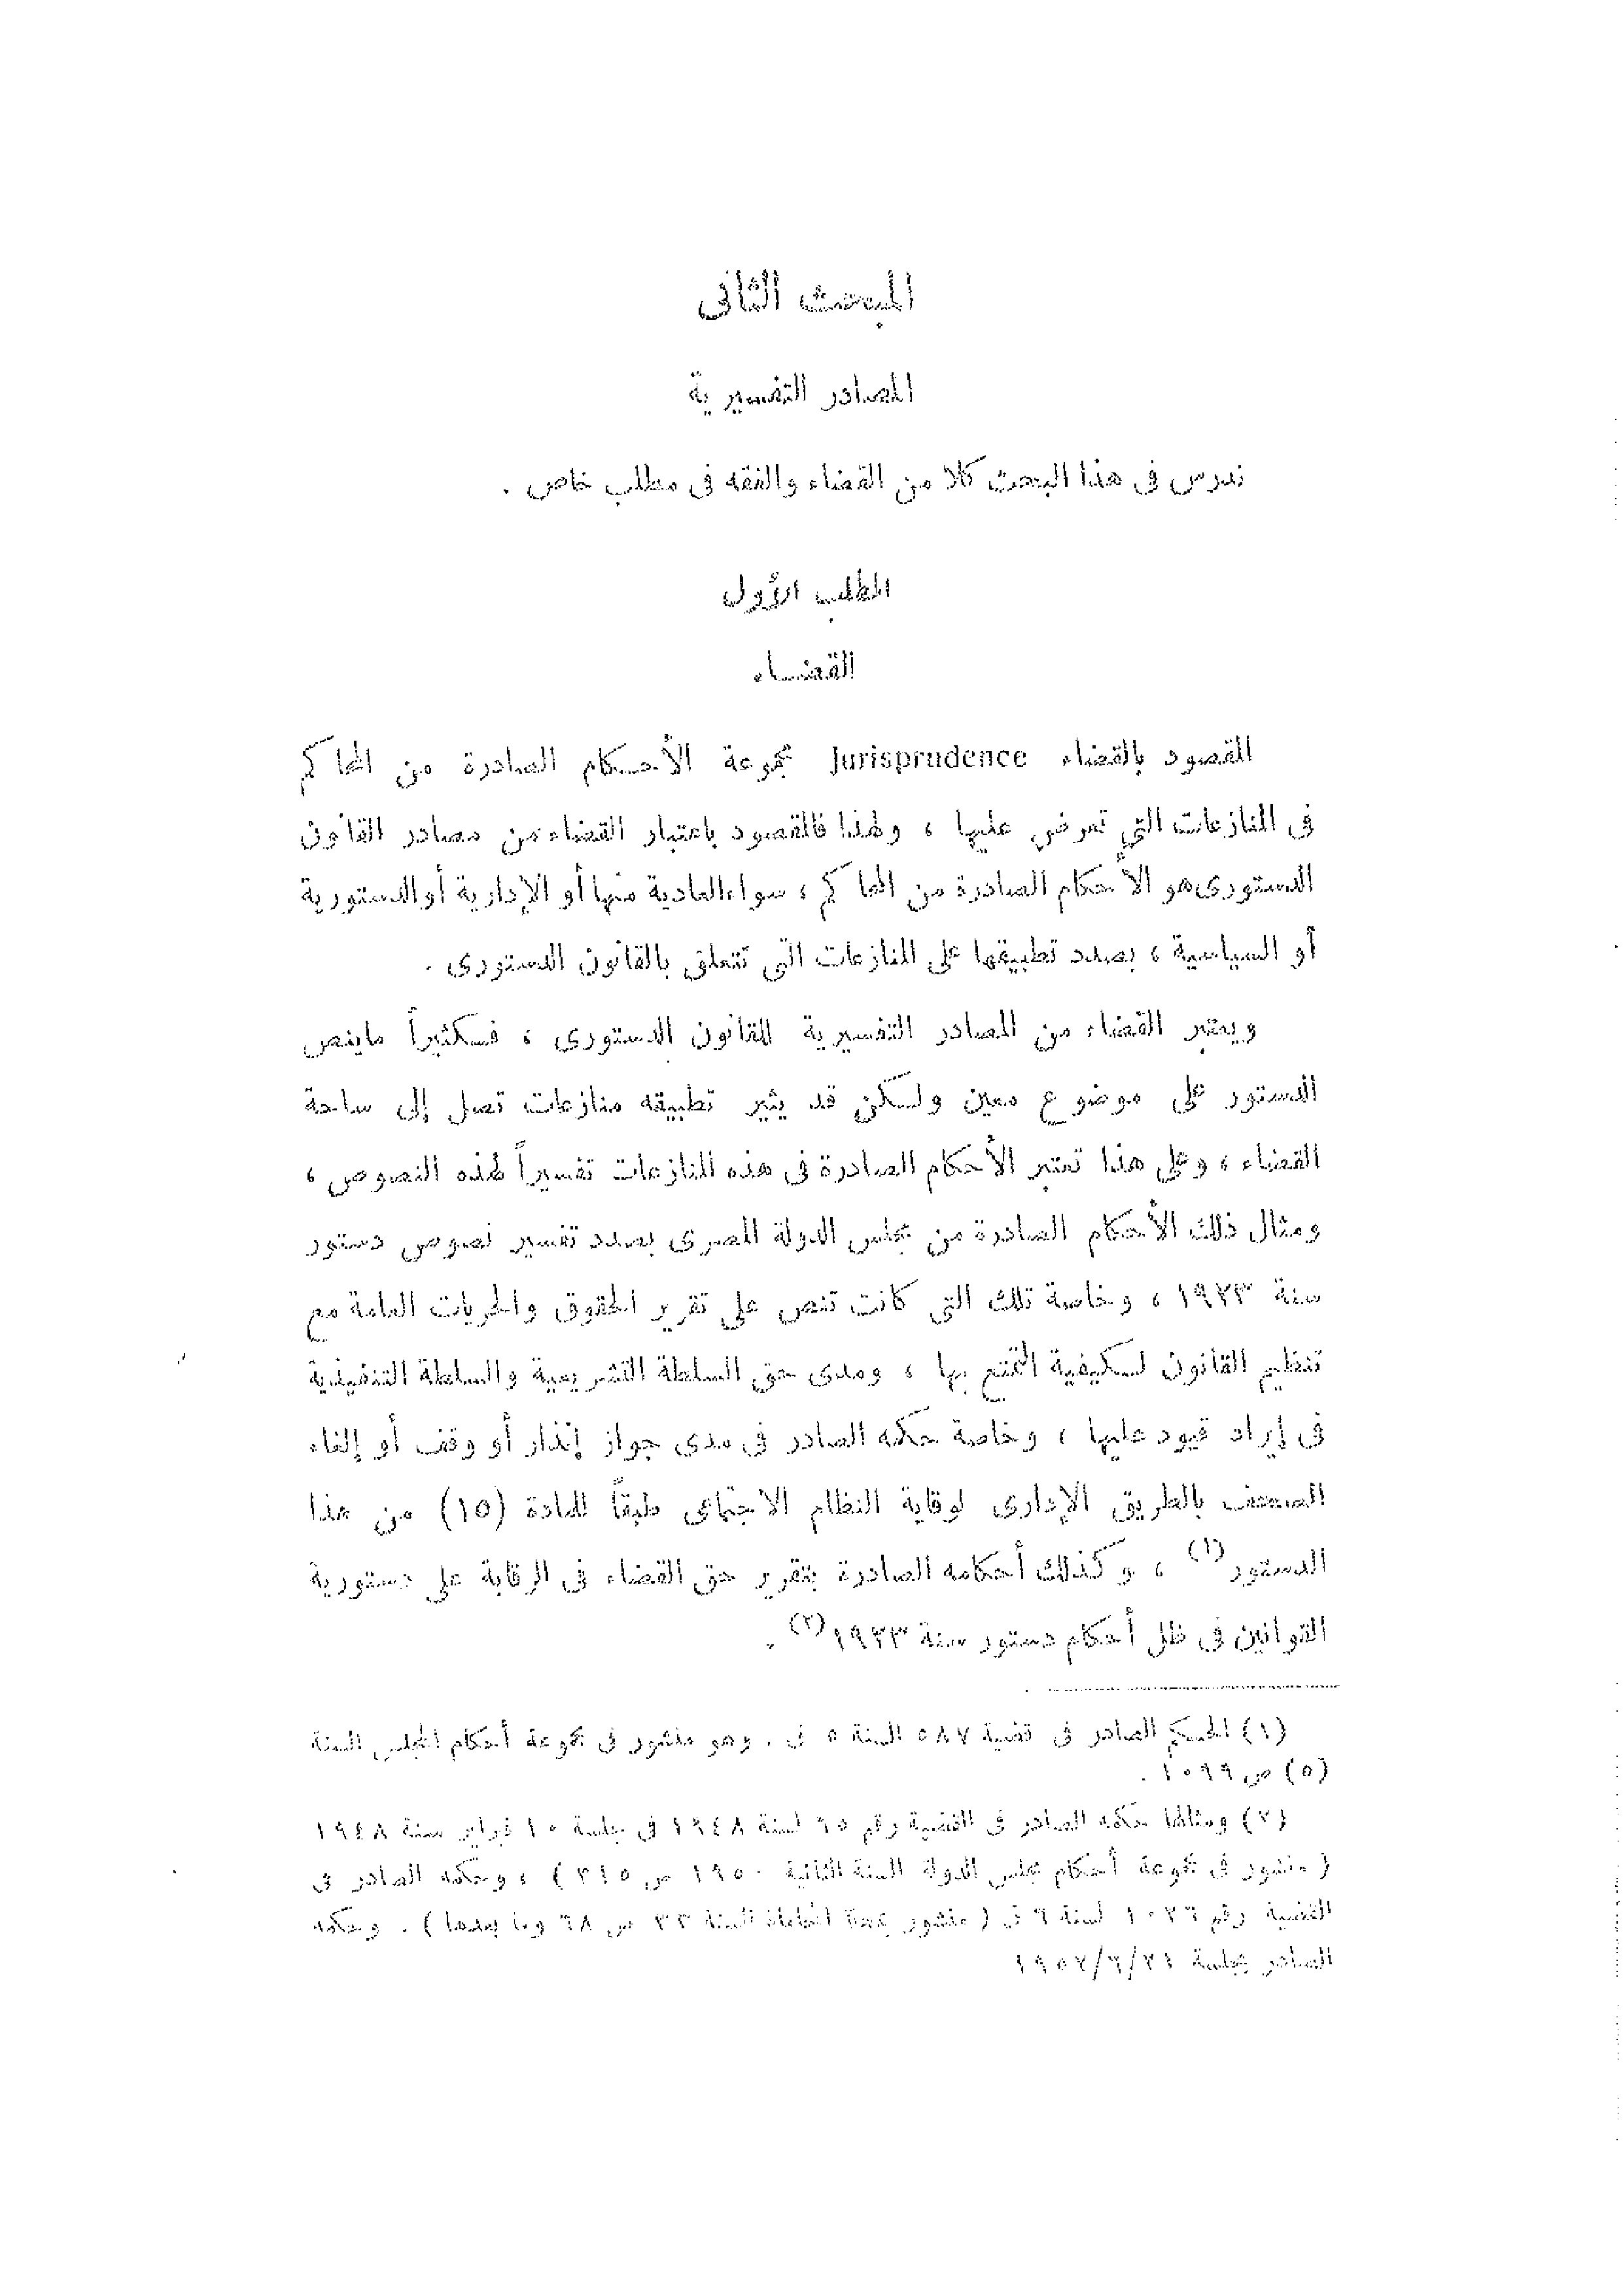 المبحث الثانى
المصادر التفسيرية
ندرس فى هذا البحث كلا من القضاء والفقه فى مطلب خاص .
المطلب الأول
القضاء
المقصود بالقضاء Jurisprudence مجموعة الأحكام الصادرة من المحاكم
فى المنازعات التى تعرض عليها ، ولهذا فالمقصود باعتبار القضاء من مصادر القانون
الدستورى هو الأحكام الصادرة من المحاكم ، سواء العادية منها أو الإدارية أو الدستورية
أو السياسية ، بصدد تطبيقها على المنازعات التى تتعلق بالقانون الدستورى .
ويعتبر القضاء من المصادر التفسيرية للقانون الدستورى ، فكثيراً ماينص
الدستور على موضوع معين ولكن قد يثير تطبيقه منازعات تصل إلى ساحة
القضاء ، وعلى هذا تعتبر الأحكام الصادرة فى هذه المنازعات تفسيراً لهذه النصوص ،
ومثال ذلك الأحكام الصادرة من مجلس الدولة المصرى بصدد تفسير نصوص دستور
سنة ١٩٢٣ ، وخاصة تلك التى كانت تنص على تقرير الحقوق والحريات العامة مع
تنظيم القانون لكيفية التمتع بها ، ومدى حق السلطة التشريعية والسلطة التنفيذية
فى إيراد قيود عليها ، وخاصة حكمه الصادر فى مدى جواز إنذار أو وقف أو إلغاء
الصحف بالطريق الإدارى لوقاية النظام الاجتماعى طبقاً للمادة (١٥) من هذا
الدستور(١) ، وكذلك أحكامه الصادرة بتقرير حق القضاء فى الرقابة على دستورية
القوانين فى ظل أحكام دستور سنة ١٩٢٣(٢) .
(١) الحكم الصادر فى قضية ٥٨٧ السنة ٥ ق . وهو منشور فى مجموعة أحكام المجلس السنة
(٥) ص ١٠٩٩ .
(٢) ومثالها حكمه الصادر فى القضية رقم ٦٥ لسنة ١٩٤٨ فى جلسة ١٠ فبراير سنة ١٩٤٨
( منشور فى مجموعة أحكام مجلس الدولة السنة الثانية ١٩٥٠ ص ٣١٥ ) ، وحكمه الصادر فى
القضية رقم ١٠٢٦ لسنة ٦ ق ( منشور بمجلة المحاماة السنة ٣٣ ص ٦٨ وما بعدها ) . وحكمه
الصادر بجلسة ١٩٥٢/٦/٢١